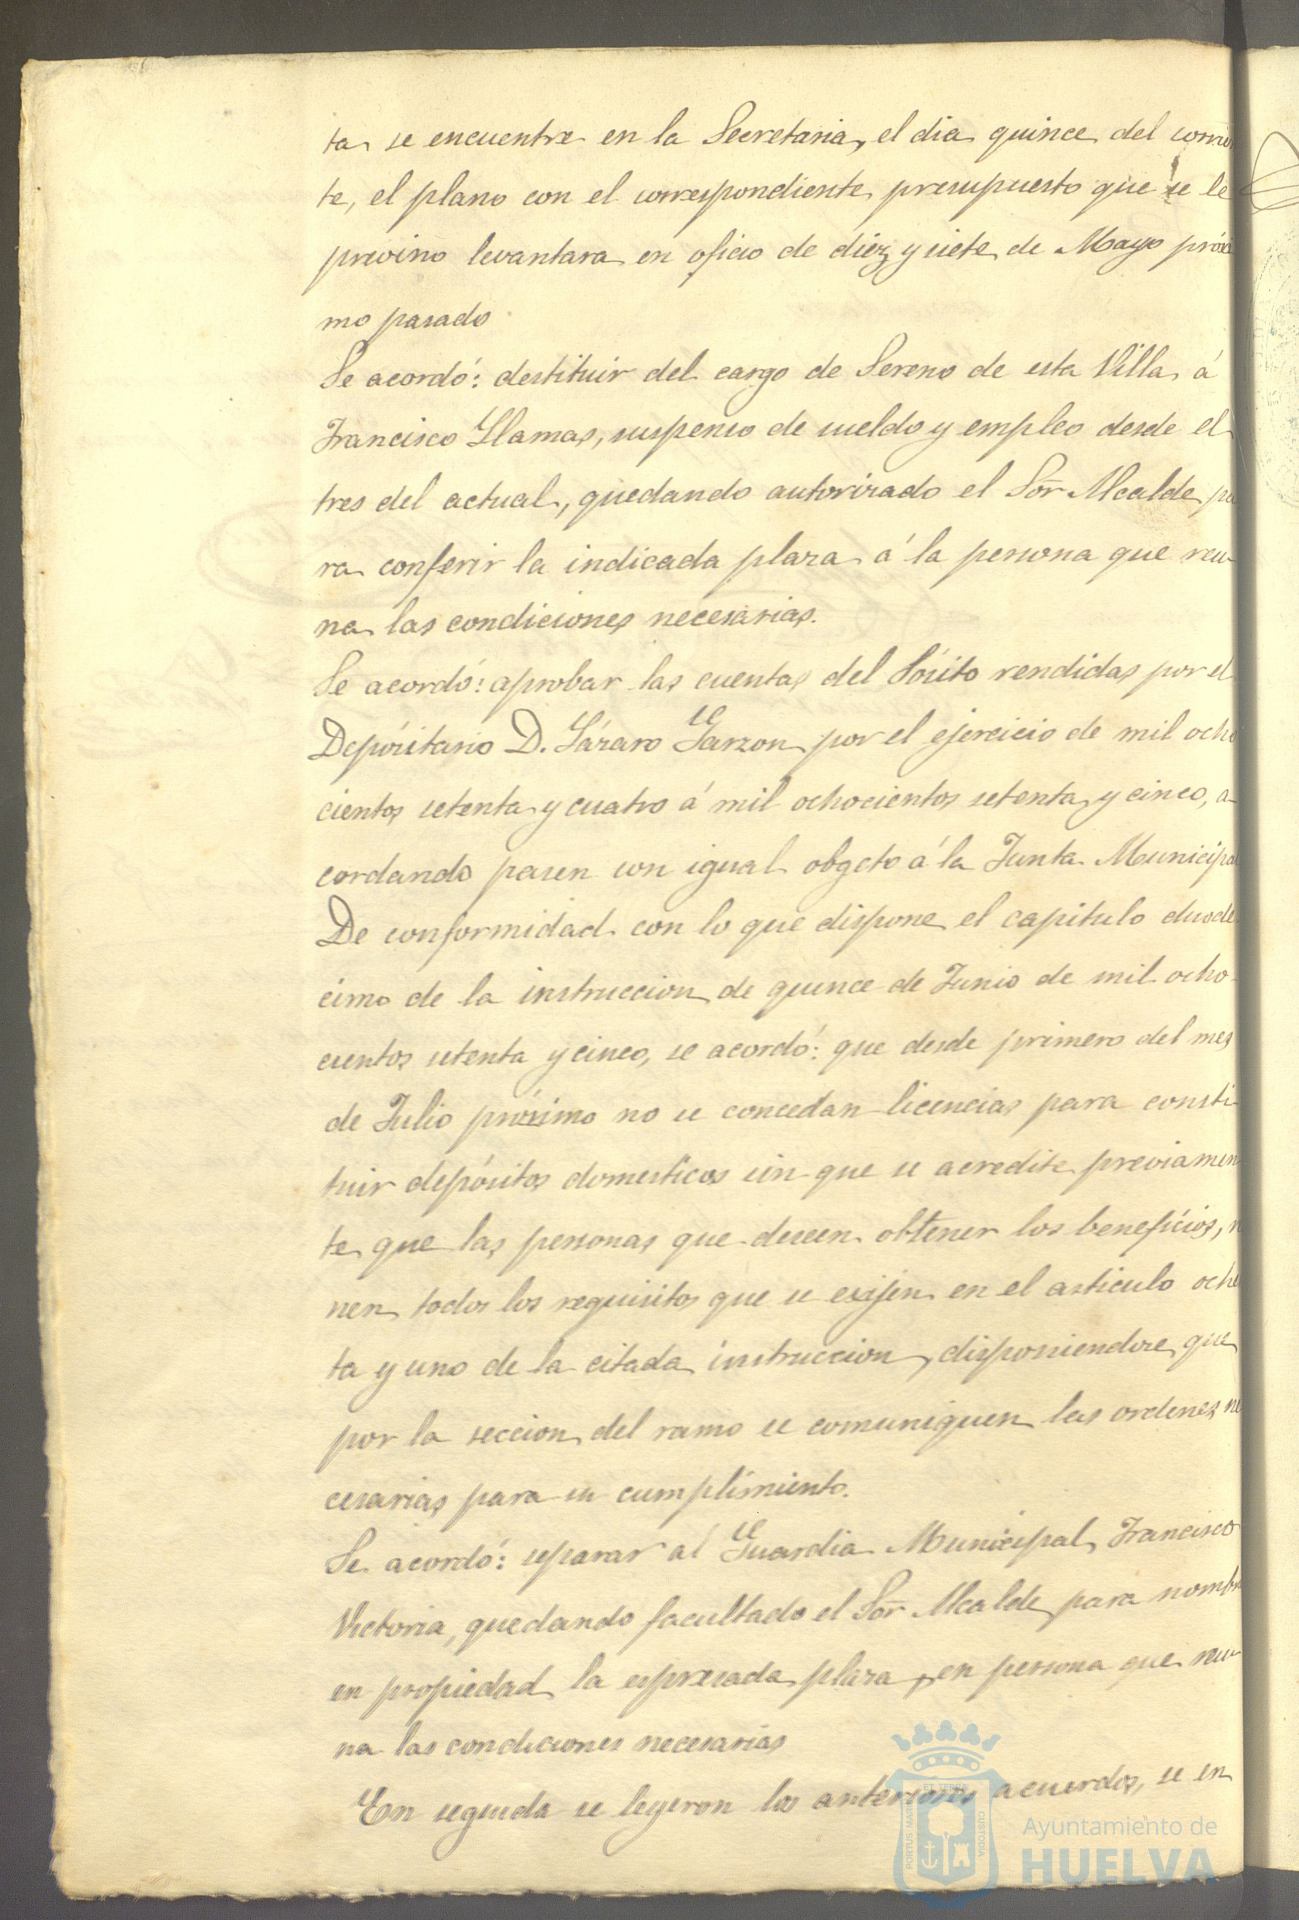 ta se encuentre en la Secretaria, el dia quince del corrien
te, el plano con el correspondiente presupuesto que se le
previno levantara en oficio de diez y siete de Mayo próxi
mo pasado
Se acordó: destituir del cargo de Sereno de esta Villa á
Francisco Llamas, suspenso de sueldo y empleo desde el
tres del actual, quedando autorizado el Sor Alcalde pa
ra conferir la indicada plaza á la persona que reu-
na las condiciones necesarias.
Se acordó: aprobar las cuentas del Pósito rendidas por el
Depósitario D. Lázaro Garzon por el ejercicio de mil ocho
cientos setenta y cuatro á mil ochocientos setenta y cinco, a-
cordando pasen con igual obgeto á la Junta Municipal
De conformidad con lo que dispone el capitulo duode
cimo de la instruccion de quince de Junio de mil ocho-
cientos setenta y cinco, se acordó: que desde primero del mes
de Julio próximo no se concedan licencias para consti-
tuir depósitos domesticos sin que se acredite previamen
te que las personas que deseen obtener los beneficios, r
nen todos los requisitos que se exijen en el articulo oche
ta y uno de la citada instruccion, disponiendose que
por la seccion del ramo se comuniquen las ordenes ne
cesarias para su cumplimiento.
Se acordó: separar al Guardia Municipal Francisco
Victoria, quedando facultado el Sor Alcalde para nombra
en propiedad la espresada plaza, en persona que reu-
na las condiciones necesarias
En seguida se leyeron los anteriores acuerdos, se en
PORTUS MARIS ET TERRAE CUSTODIA
Ayuntamiento de
HUELVA